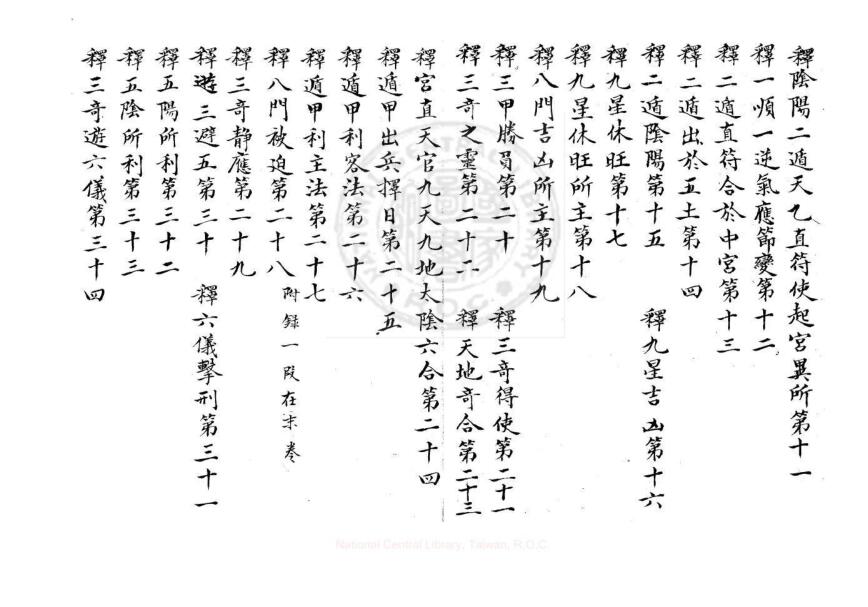 釋陰陽二遁天乙直符使起宮異所第十一
釋一順一逆氣應節變第十二
釋二遁直符合於中宮第十三
釋二遁出於五土第十四
釋二遁陰陽第十五 釋九星吉凶第十六
釋九星休旺第十七
釋九星休旺所主第十八
釋八門吉凶所主第十九
釋三甲勝負第二十 釋三奇得使第二十一
釋三奇之靈第二十二 釋天地奇合第二十三
釋宮直天官九天九地太陰六合第二十四
釋遁甲出兵擇日第二十五
釋遁甲利客法第二十六
釋遁甲利主法第二十七
釋八門被迫第二十八 附錄一段在末卷
釋三奇静應第二十九
釋遊三避五第三十 釋六儀擊刑第三十一
釋五陽所利第三十二
釋五陰所利第三十三
釋三奇遊六儀第三十四
National Central Library, Taiwan, R.O.C.